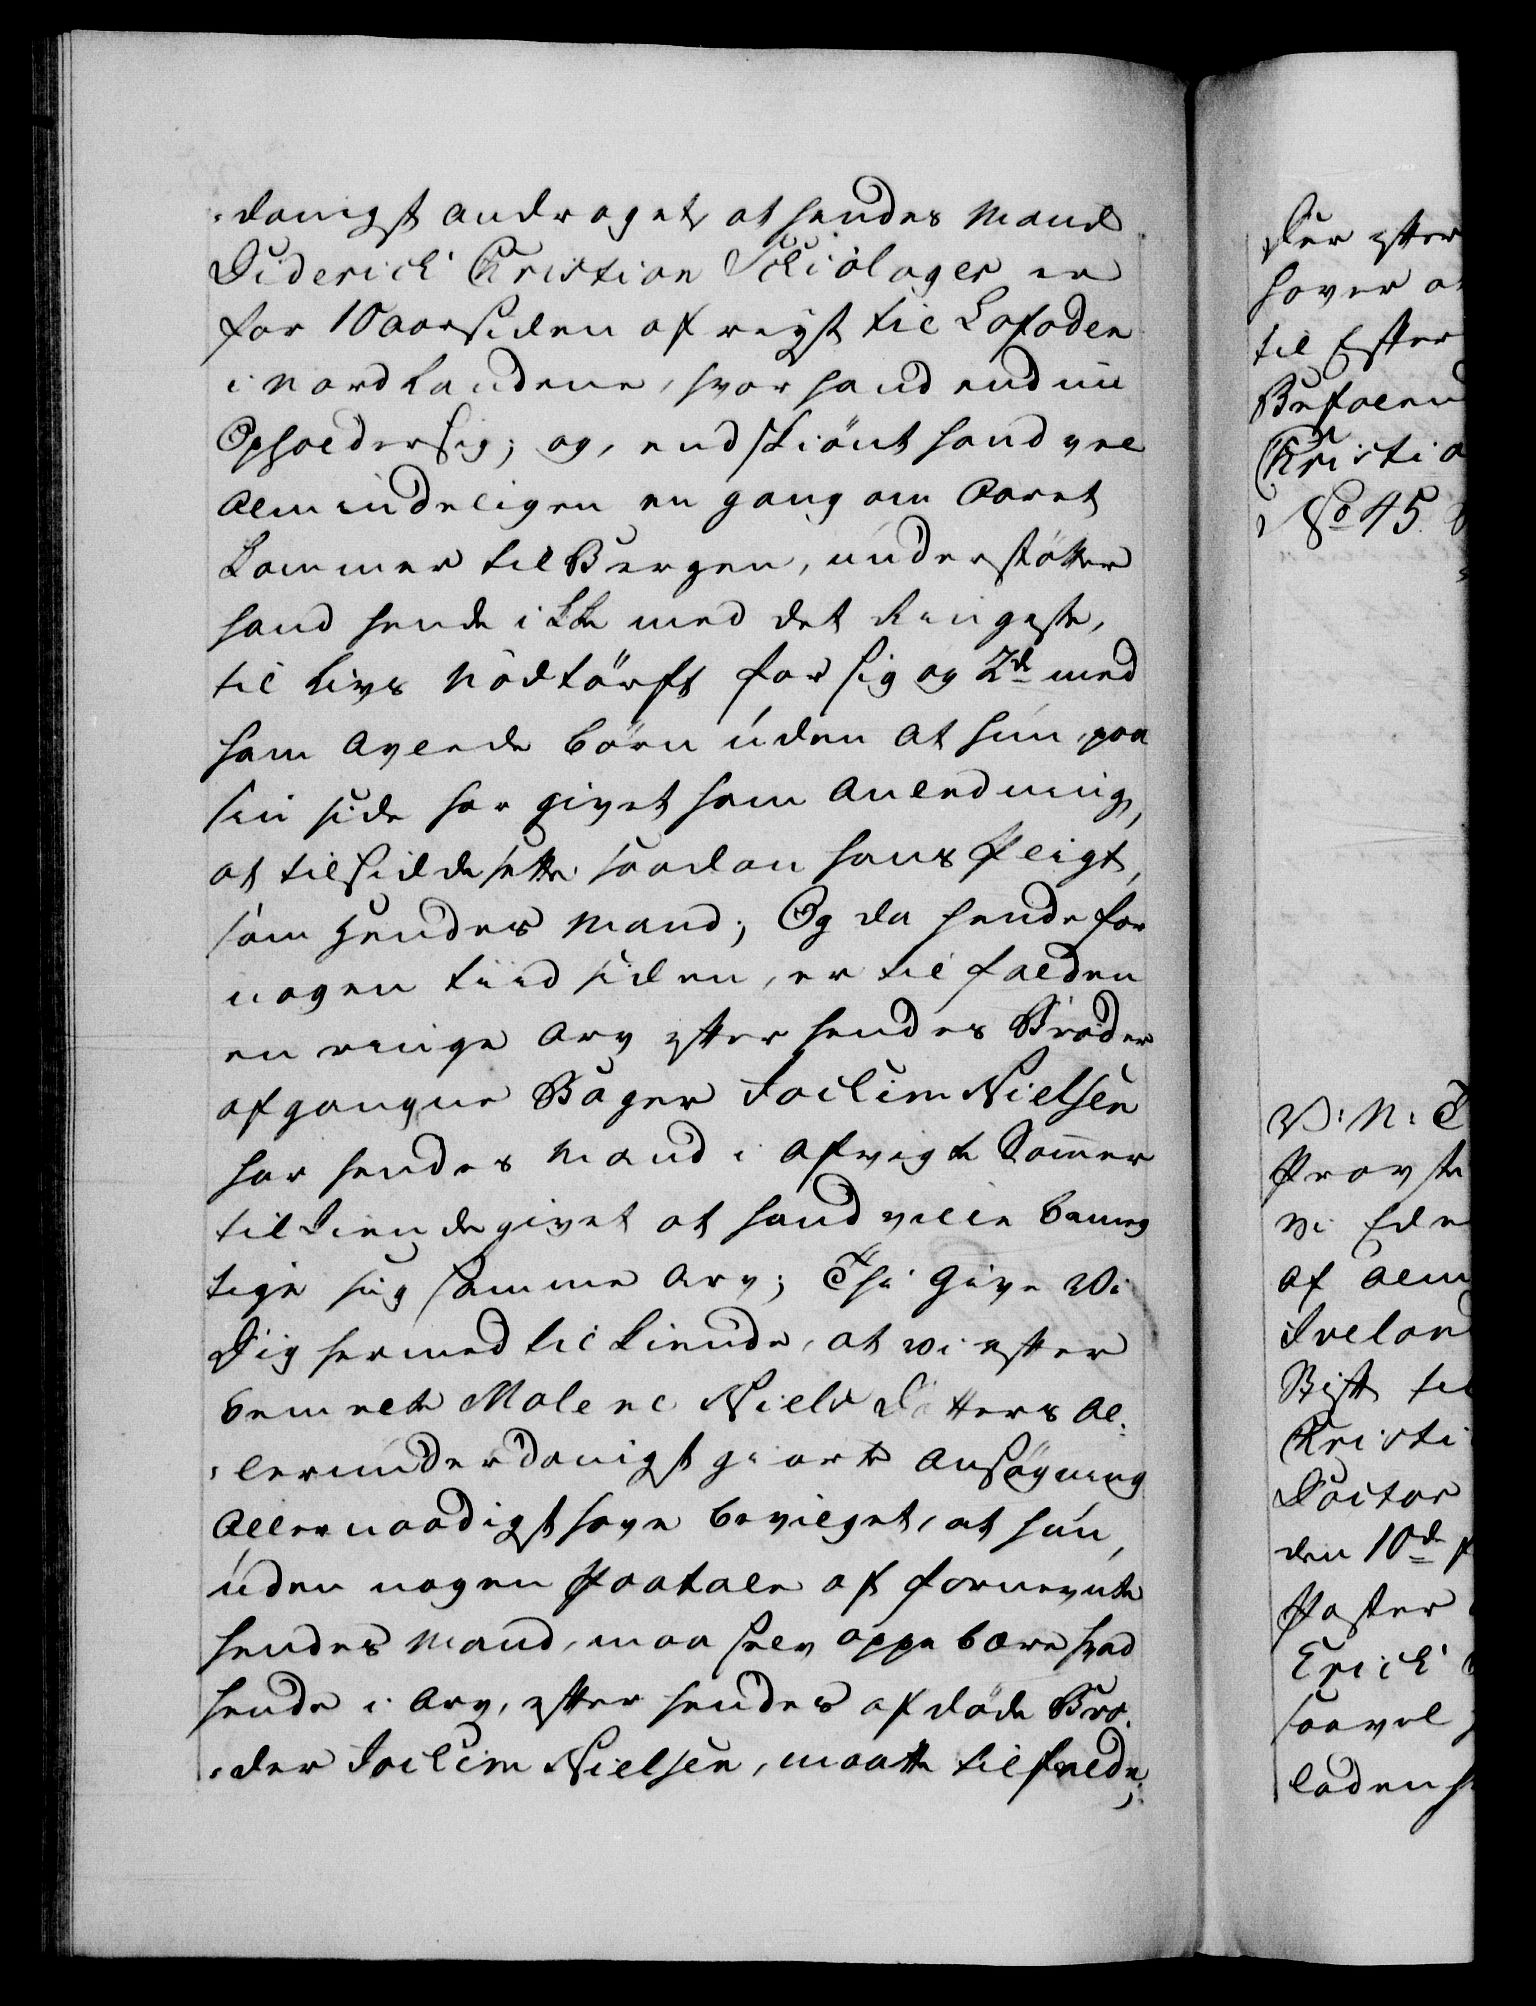 -danigst andraget, at hendes Mand
Diderich Christian Schiölager er
for 10 aar siden afreyst til Lofoden
i Nordlandene, hvor hand endnu
Opholder sig; og, endskiönt hand vel
Almindeligen en gang om Aaret
kommer til Bergen, understötter
hand hende ikke med det Ringeste,
til Livs Nödtörft for sig og 2de med
ham Avlede Börn uden at hun paa
sin side har givet ham Anledning,
at tilsidesette saadan hans Pligt,
som Hendes Mand; Og da hende for
nogen tiid siden, er tilfalden
en ringe Arv efter hendes Broder
afgangne Bager Jochim Nielsen
har hendes Mand i Afvigte Sommer
tilkiendegivet at hand ville bemeg
tige sig samme Arv; Thi Give Wi
Dig hermed til kiende, at wi efter
bemelte Malene Niels Datters Al-
-lerunderdanigst giorte Ansögning
Allernaadigst have bevilget, at hun,
uden nogen Paatale af fornevnte
hendes Mand, maa selv oppebære hvad
hende i Arv, efter hendes afdöde Bro-
-der Jochim Nielsen, maatte tilfalde;
Der efter
haver a
til Efter
Befalend
Christia
No 45
W: N: T
Provste
Wi Ede
af Alm
Iveland
Bist til
Christi
Doctor
den 10de
Pastor
Erich
saavel
laden